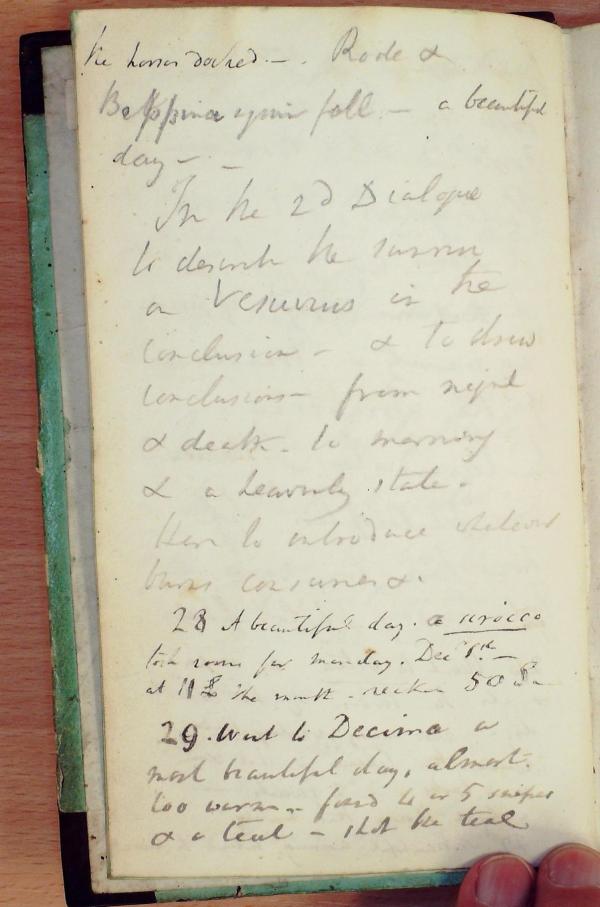 the horses docked. - . Rode &
Beppina again fall. - a beautiful
day - -
In the 2d Dialogue
to describe the sunrise
on Vesuvius in the
conclusion - & to draw
conclusions - from night
& death. to morning
& a heavenly state.
Here to introduce whatever
burns consumes &.
28 A beautiful day. a sirocco
took rooms for monday. Dec 1st. -
at 11 the month - reckon 50
29. Went to Decima a
most beautiful day, almost.
too warm - found 4 or 5 snipes
& a teal - shot the teal